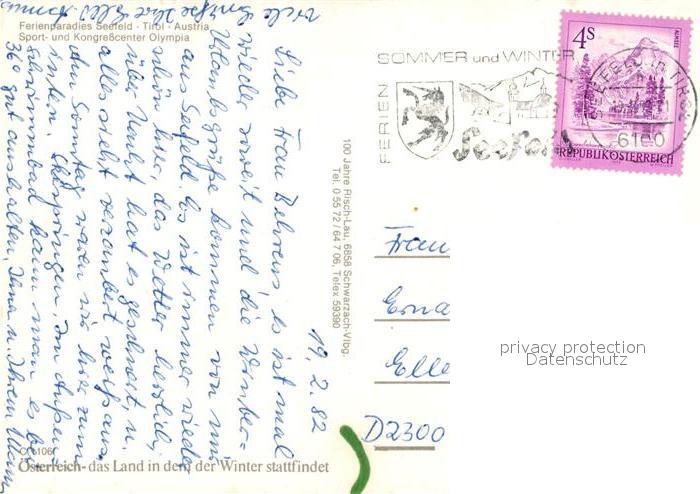 Ferienparadies Seefeld · Tirol · Austria
Sport- und Kongreßcenter Olympia
19.2.82
Liebe Frau Behrens, es ist mal
wieder soweit und die Winter-
Urlaubsgrüße kommen von mir
aus Seefeld. Es ist immer wieder
schön hier, das Wetter herrlich,
über Nacht hat es geschneit, u.
alles sieht verzaubert weiß aus.
Am Sonntag waren wir hier zum
Skispringen. Im Außen-
schwimmbad kann man es bei
36° gut aushalten. Ihnen u. Ihrem Mann
viele Grüße Ihre
C 6106
Österreich - das Land in dem der Winter stattfindet
100 Jahre Risch-Lau, 6858 Schwarzach-Vlbg.
Tel. 0 55 72 / 64 7 06, Telex 59390
SOMMER und WINTER
FERIEN
Seefeld
SEEFELD IN TIROL
6100
4S
ALMSEE
REPUBLIK ÖSTERREICH
Frau
Erna
Elle
D2300
privacy protection
Datenschutz